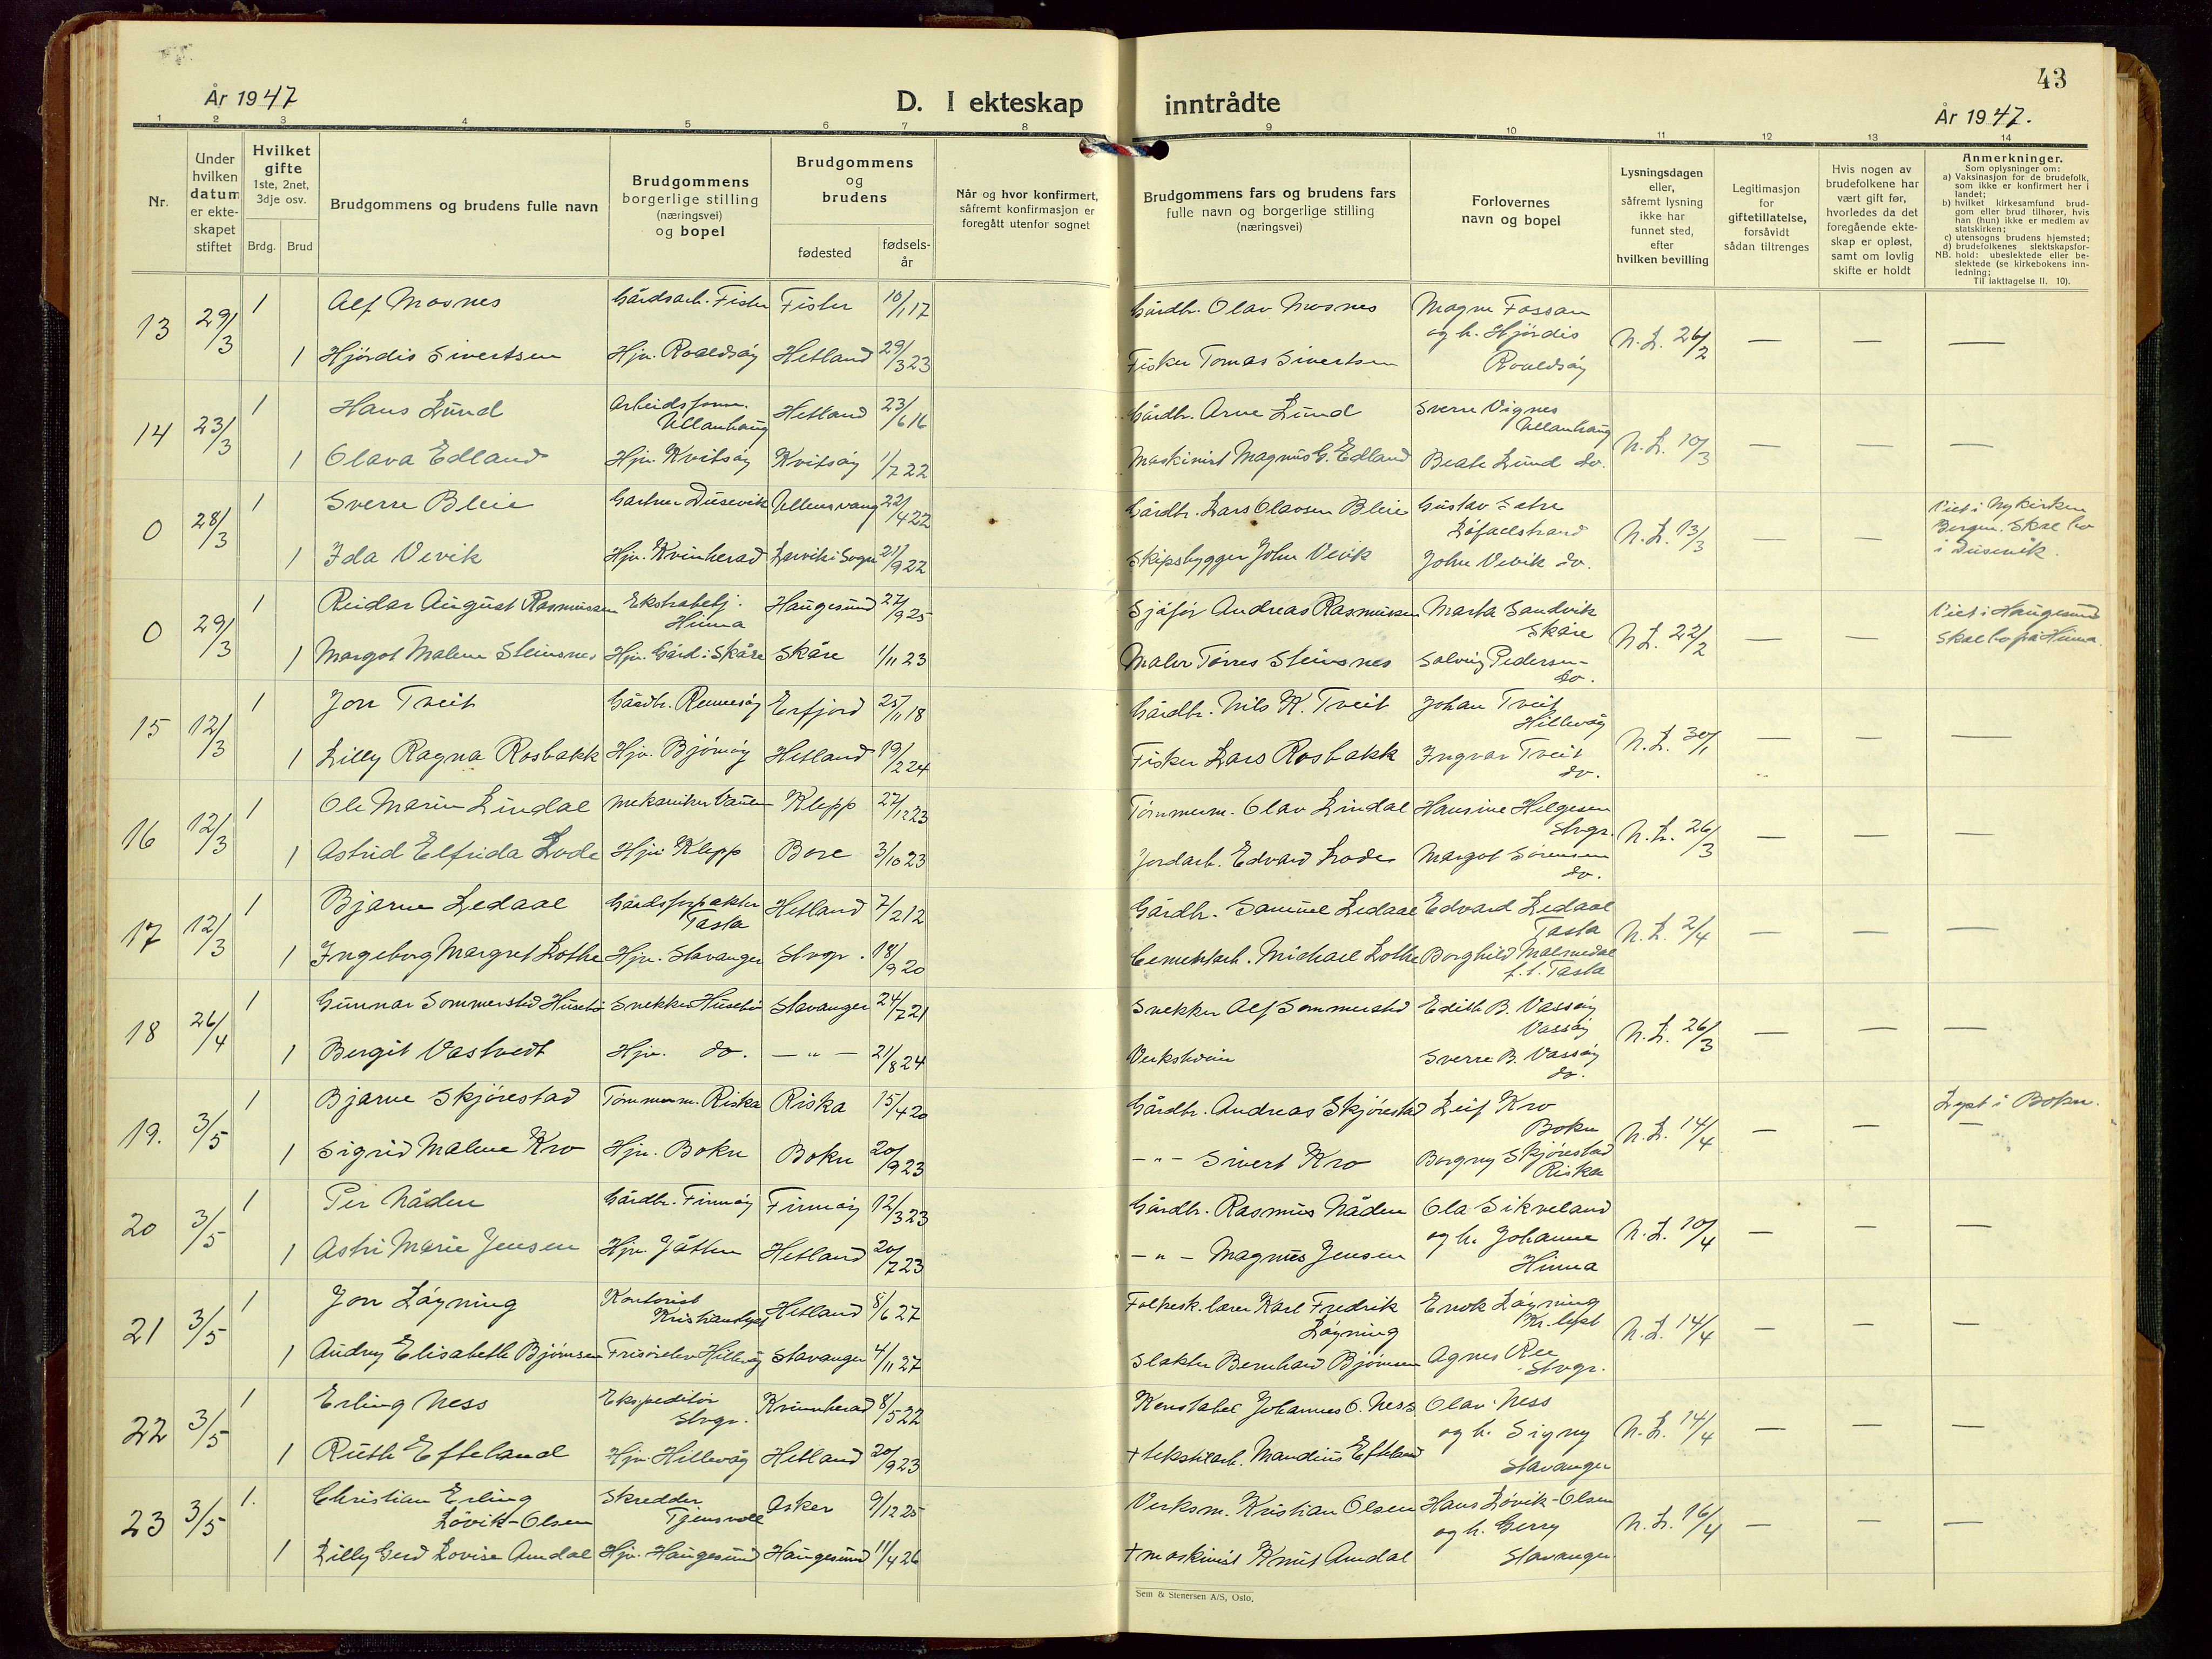 43
År 1947
D. I ekteskap inntrådte
År 1947.
1 2 3 4 5 6 7 8 9 10 11 12 13 14
Nr.
Under hvilken datum er ekteskapet stiftet
Hvilket gifte 1ste, 2net, 3dje osv.
Brdg. Brud
Brudgommens og brudens fulle navn
Brudgommens borgerlige stilling (næringsvei) og bopel
Brudgommens og brudens
fødested
fødselsår
Når og hvor konfirmert, såfremt konfirmasjon er foregått utenfor sognet
Brudgommens fars og brudens fars fulle navn og borgerlige stilling (næringsvei)
Forlovernes navn og bopel
Lysningsdagen eller, såfremt lysning ikke har funnet sted, efter hvilken bevilling
Legitimasjon for giftetillatelse, forsåvidt sådan tiltrenges
Hvis nogen av brudefolkene har vært gift før, hvorledes da det foregående ekteskap er opløst, samt om lovlig skifte er holdt
Anmerkninger.
Som oplysninger om:
a) Vaksinasjon for de brudefolk, som ikke er konfirmert her i landet;
b) hvilket kirkesamfund brudgom eller brud tilhører, hvis han (hun) ikke er medlem av statskirken;
c) utensogns brudens hjemsted;
d) brudefolkenes slektskapsforhold: ubeslektede eller beslektede (se kirkebokens innledning;
NB. Til iakttagelse II. 10).
13 29/3 1 Alf Mosnes Gårdsarb. Fister Fister 10/1 17 Gårdbr. Olav Mosnes Magne Fossan og h. Hjördis Roaldsöy N.L. 26/2 — — —
1 Hjördis Sivertsen Hjv. Roaldsöy Hetland 29/3 23 Fisker Tomas Sivertsen
14 23/3 1 Hans Lund Arbeidsform. Ullanhaug Hetland 23/6 16 Gårdbr. Arne Lund Sverre Vignes Ullanhaug N.L. 10/3 — — —
1 Olava Edland Hjv. Kvitsöy Kvitsöy 1/7 22 Maskinist Magnus G. Edland Beate Lund do.
0 28/3 1 Sverre Bleie Gartner Dusevik Ullensvang 22/4 22 Gårdbr. Lars Olavsen Bleie Gustav Sætre Löfallstrand N.L. 13/3 — — Viet i Nykirken Bergen. Skal bo i Dusevik.
1 Ida Vevik Hjv. Kvinherad Lervik i Sogn 21/9 22 Skipsbygger John Vevik John Vevik do.
0 29/3 1 Reidar August Rasmussen Ekstrabetj. Hinna Haugesund 27/9 25 Sjåför Andreas Rasmussen Marta Sandvik Skåre N.L. 22/2 — — Viet i Haugesund Skal bo på Hinna.
1 Margot Malene Steinsnes Hjv. Gård i Skåre Skåre 1/11 23 Maler Torres Steinsnes Solveig Pedersen do.
15 12/3 1 Jon Tveit Gårdbr. Rennesöy Erfjord 25/11 18 Gårdbr. Nils K. Tveit Johan Tveit Hillevåg N.L. 30/1 — — —
1 Lilly Ragna Rosbakk Hjv. Bjørnöy Hetland 19/2 24 Fisker Lars Rosbakk Ingvar Tveit do.
16 12/3 1 Ole Marin Lindal Mekaniker Klepp 27/12 23 Tömmerm. Olav Lindal Hansine Helgesen Stvgr. N.L. 26/3 — — —
1 Astrid Elfrida Lode Hjv. Klepp Bore 3/10 23 Jordarb. Edvard Lode Margot Sörensen do.
17 12/3 1 Bjarne Ledaal Gårdsforpakter Tasta Hetland 7/2 12 Gårdbr. Samuel Ledaal Edvard Ledaal Tasta N.L. 2/4 — — —
1 Ingeborg Margret Lothe Hjv. Stavanger Stvgr. 18/9 20 Cementarb. Michael Lothe Borghild Malmedal f.t. Tasta
18 26/4 1 Gunnar Sommersted Husebö Snekker Husebö Stavanger 24/7 21 Snekker Alf Sommersted Edith B. Vassöy Vassöy N.L. 26/3 — — —
1 Bergit Vastvedt Hjv. do. — " — 21/8 24 Sverre B. Vassöy do.
19. 3/5 1 Bjarne Skjörestad Tömmerm. Riska Riska 15/4 20 Gårdbr. Andreas Skjörestad Leif Kro Bokn N.L. 14/4 — — Lyst i Bokn. —
1 Sigrid Malene Kro Hjv. Bokn Bokn 20/9 23 — " — Sivert Kro Borgny Skjörestad Riska
20 3/5 1 Per Nåden Gårdbr. Finnöy Finnöy 12/3 23 Gårdbr. Rasmus Nåden Ola Sikveland og h. Johanne Hinna N.L. 10/4 — — —
1 Astri Marie Jensen Hjv. Jåtten Hetland 20/7 23 — " — Magnus Jensen
21 3/5 1 Jon Löyning Kontorist Kristianslyst Hetland 8/6 27 Folkesk.lærer Karl Fredrik Löyning Enok Löyning Kr.lyst N.L. 14/4 — — —
1 Audny Elisabeth Bjørnsen Frisörelev Hillevåg Stavanger 4/11 27 Slakter Bernhard Bjørnsen Agnes Ree Stvgr.
22 3/5 1 Erling Ness Ekspeditör Stvgr. Kvinnherad 8/5 22 Konstabel Johannes O. Ness Olav Ness og h. Signy Stavanger N.L. 14/4 — — —
1 Ruth Efteland Hjv. Hillevåg Hetland 20/9 23 + tekstilarb. Mandius Efteland
23 3/5 1. Christian Erling Lövik-Olsen Skredder Tjensvoll Asker 9/12 25 Verksm. Kristian Olsen Hans Lövik-Olsen og h. Gerry Stavanger N.L. 16/4 — — —
1 Lilly Gerd Lovise Amdal Hjv. Haugesund Haugesund 11/4 26 + maskinist Knut Amdal
Sem & Stenersen A/S, Oslo.